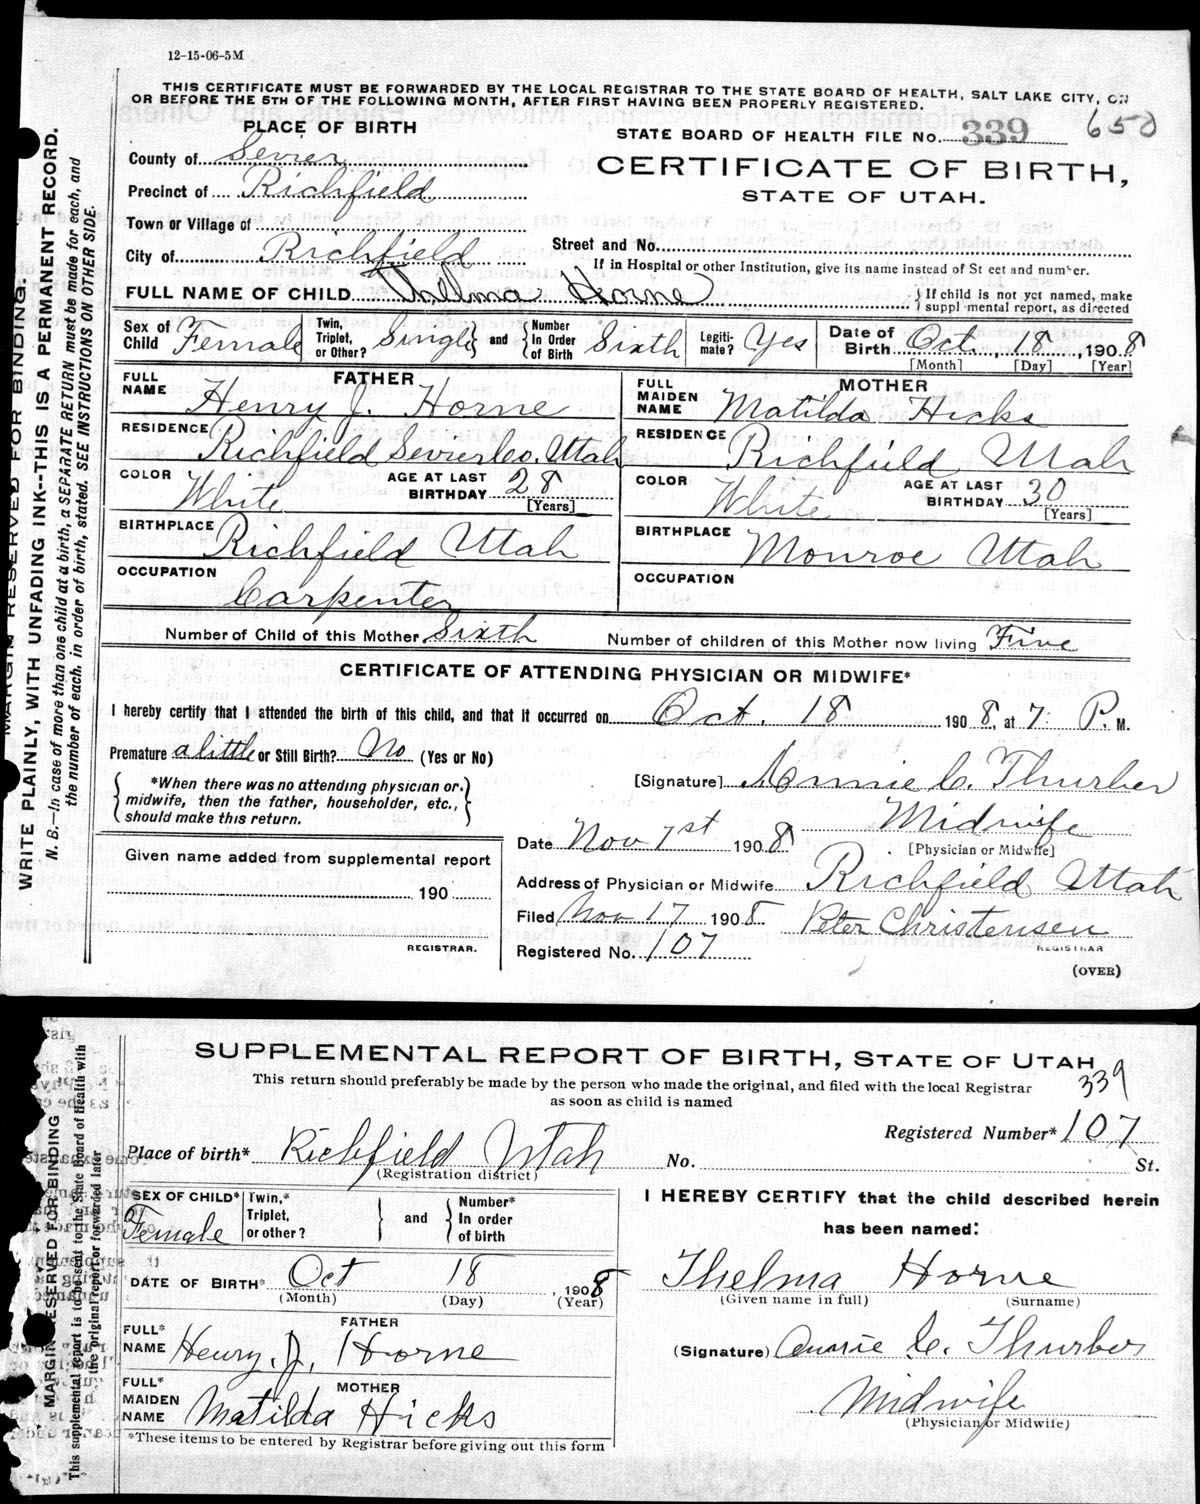 12-15-06-5M
THIS CERTIFICATE MUST BE FORWARDED BY THE LOCAL REGISTRAR TO THE STATE BOARD OF HEALTH, SALT LAKE CITY, ON
OR BEFORE THE 5TH OF THE FOLLOWING MONTH, AFTER FIRST HAVING BEEN PROPERLY REGISTERED.
PLACE OF BIRTH
STATE BOARD OF HEALTH FILE No. 339 650
County of Sevier
CERTIFICATE OF BIRTH,
Precinct of Richfield
STATE OF UTAH.
Town or Village of
City of Richfield
Street and No.
If in Hospital or other Institution, give its name instead of St eet and number.
FULL NAME OF CHILD Thelma Horne { If child is not yet named, make
suppl mental report, as directed
Sex of Child Female Twin, Triplet, or Other? Single } and { Number In Order of Birth Sixth Legiti-mate? Yes Date of Birth Oct. 18, 1908
[Month] [Day] [Year]
FATHER
FULL NAME Henry J. Horne
RESIDENCE Richfield Sevier Co. Utah
COLOR White AGE AT LAST BIRTHDAY 28
[Years]
BIRTHPLACE Richfield Utah
OCCUPATION Carpenter
MOTHER
FULL MAIDEN NAME Matilda Hicks
RESIDENCE Richfield Utah
COLOR White AGE AT LAST BIRTHDAY 30
[Years]
BIRTHPLACE Monroe Utah
OCCUPATION
Number of Child of this Mother Sixth Number of children of this Mother now living Five
CERTIFICATE OF ATTENDING PHYSICIAN OR MIDWIFE*
I hereby certify that I attended the birth of this child, and that it occurred on Oct. 18 1908, at 7 P. M.
Premature a little or Still Birth? No (Yes or No)
{ *When there was no attending physician or
midwife, then the father, householder, etc.,
should make this return. }
[Signature] Annie C. Thurber
Midwife
Date Nov 1st 1908 [Physician or Midwife]
Given name added from supplemental report
190
REGISTRAR.
Address of Physician or Midwife Richfield Utah
Filed Nov 17 1908 Peter Christensen
REGISTRAR
Registered No. 107
(OVER)
MARGIN RESERVED FOR BINDING.
WRITE PLAINLY, WITH UNFADING INK--THIS IS A PERMANENT RECORD.
N. B.—In case of more than one child at a birth, a SEPARATE RETURN must be made for each, and
the number of each, in order of birth, stated. SEE INSTRUCTIONS ON OTHER SIDE.
SUPPLEMENTAL REPORT OF BIRTH, STATE OF UTAH
This return should preferably be made by the person who made the original, and filed with the local Registrar 339
as soon as child is named
Registered Number* 107
Place of birth* Richfield Utah No. St.
(Registration district)
SEX OF CHILD* Female Twin,* Triplet, or other? } and { Number* In order of birth
DATE OF BIRTH* Oct 18, 1908
(Month) (Day) (Year)
FATHER
FULL* NAME Henry. J. Horne
MOTHER
FULL* MAIDEN NAME Matilda Hicks
*These items to be entered by Registrar before giving out this form
I HEREBY CERTIFY that the child described herein
has been named:
Thelma Horne
(Given name in full) (Surname)
(Signature) Annie C. Thurber
Midwife
(Physician or Midwife)
MARGIN RESERVED FOR BINDING
This supplemental report is to be sent to the State Board of Health with
the original report or forwarded later